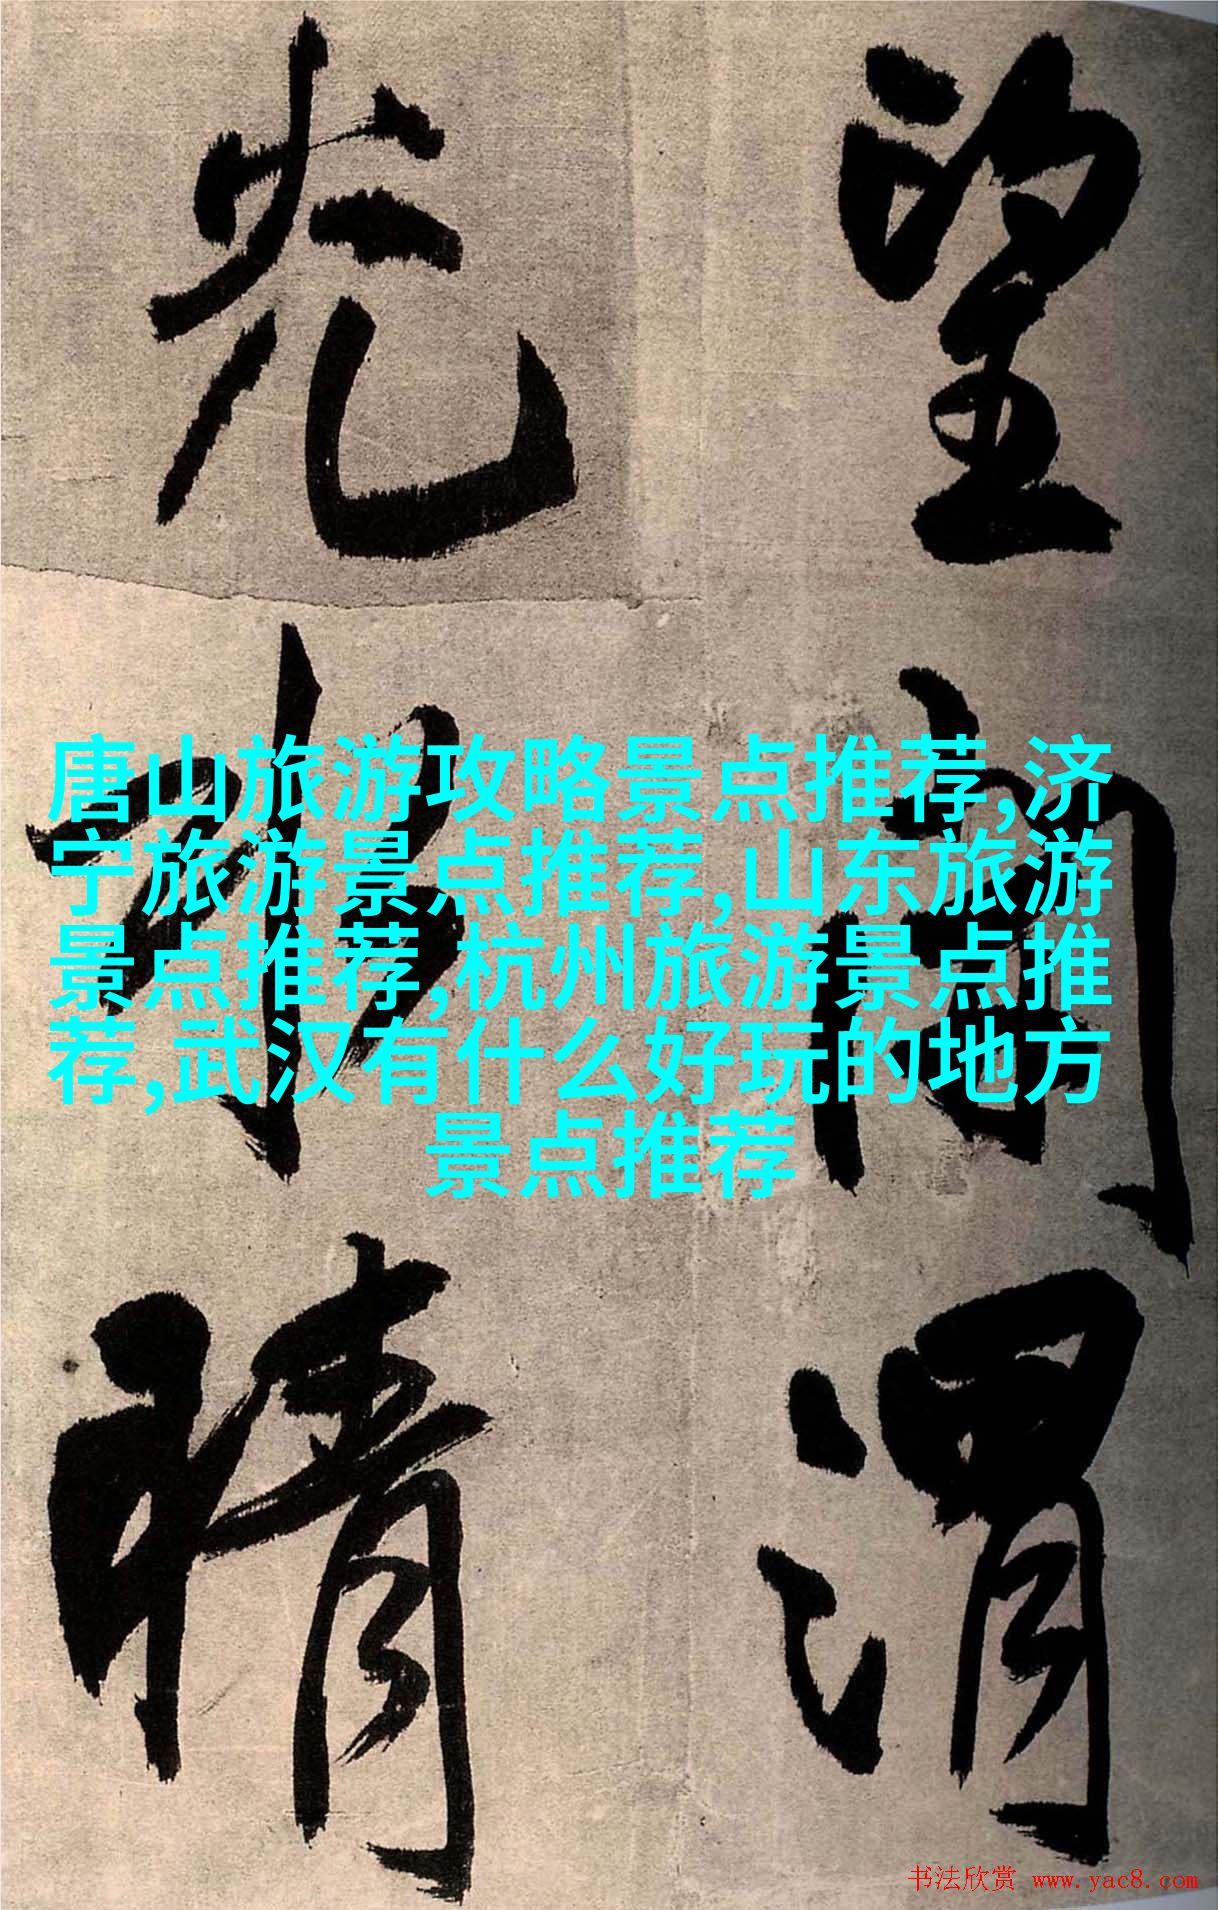 望渭
光晴
唐山旅游攻略景点推荐,济
宁旅游景点推荐,山东旅游
景点推荐,杭州旅游景点推
荐,武汉有什么好玩的地方
景点推荐
书法欣赏 www.yac8.com